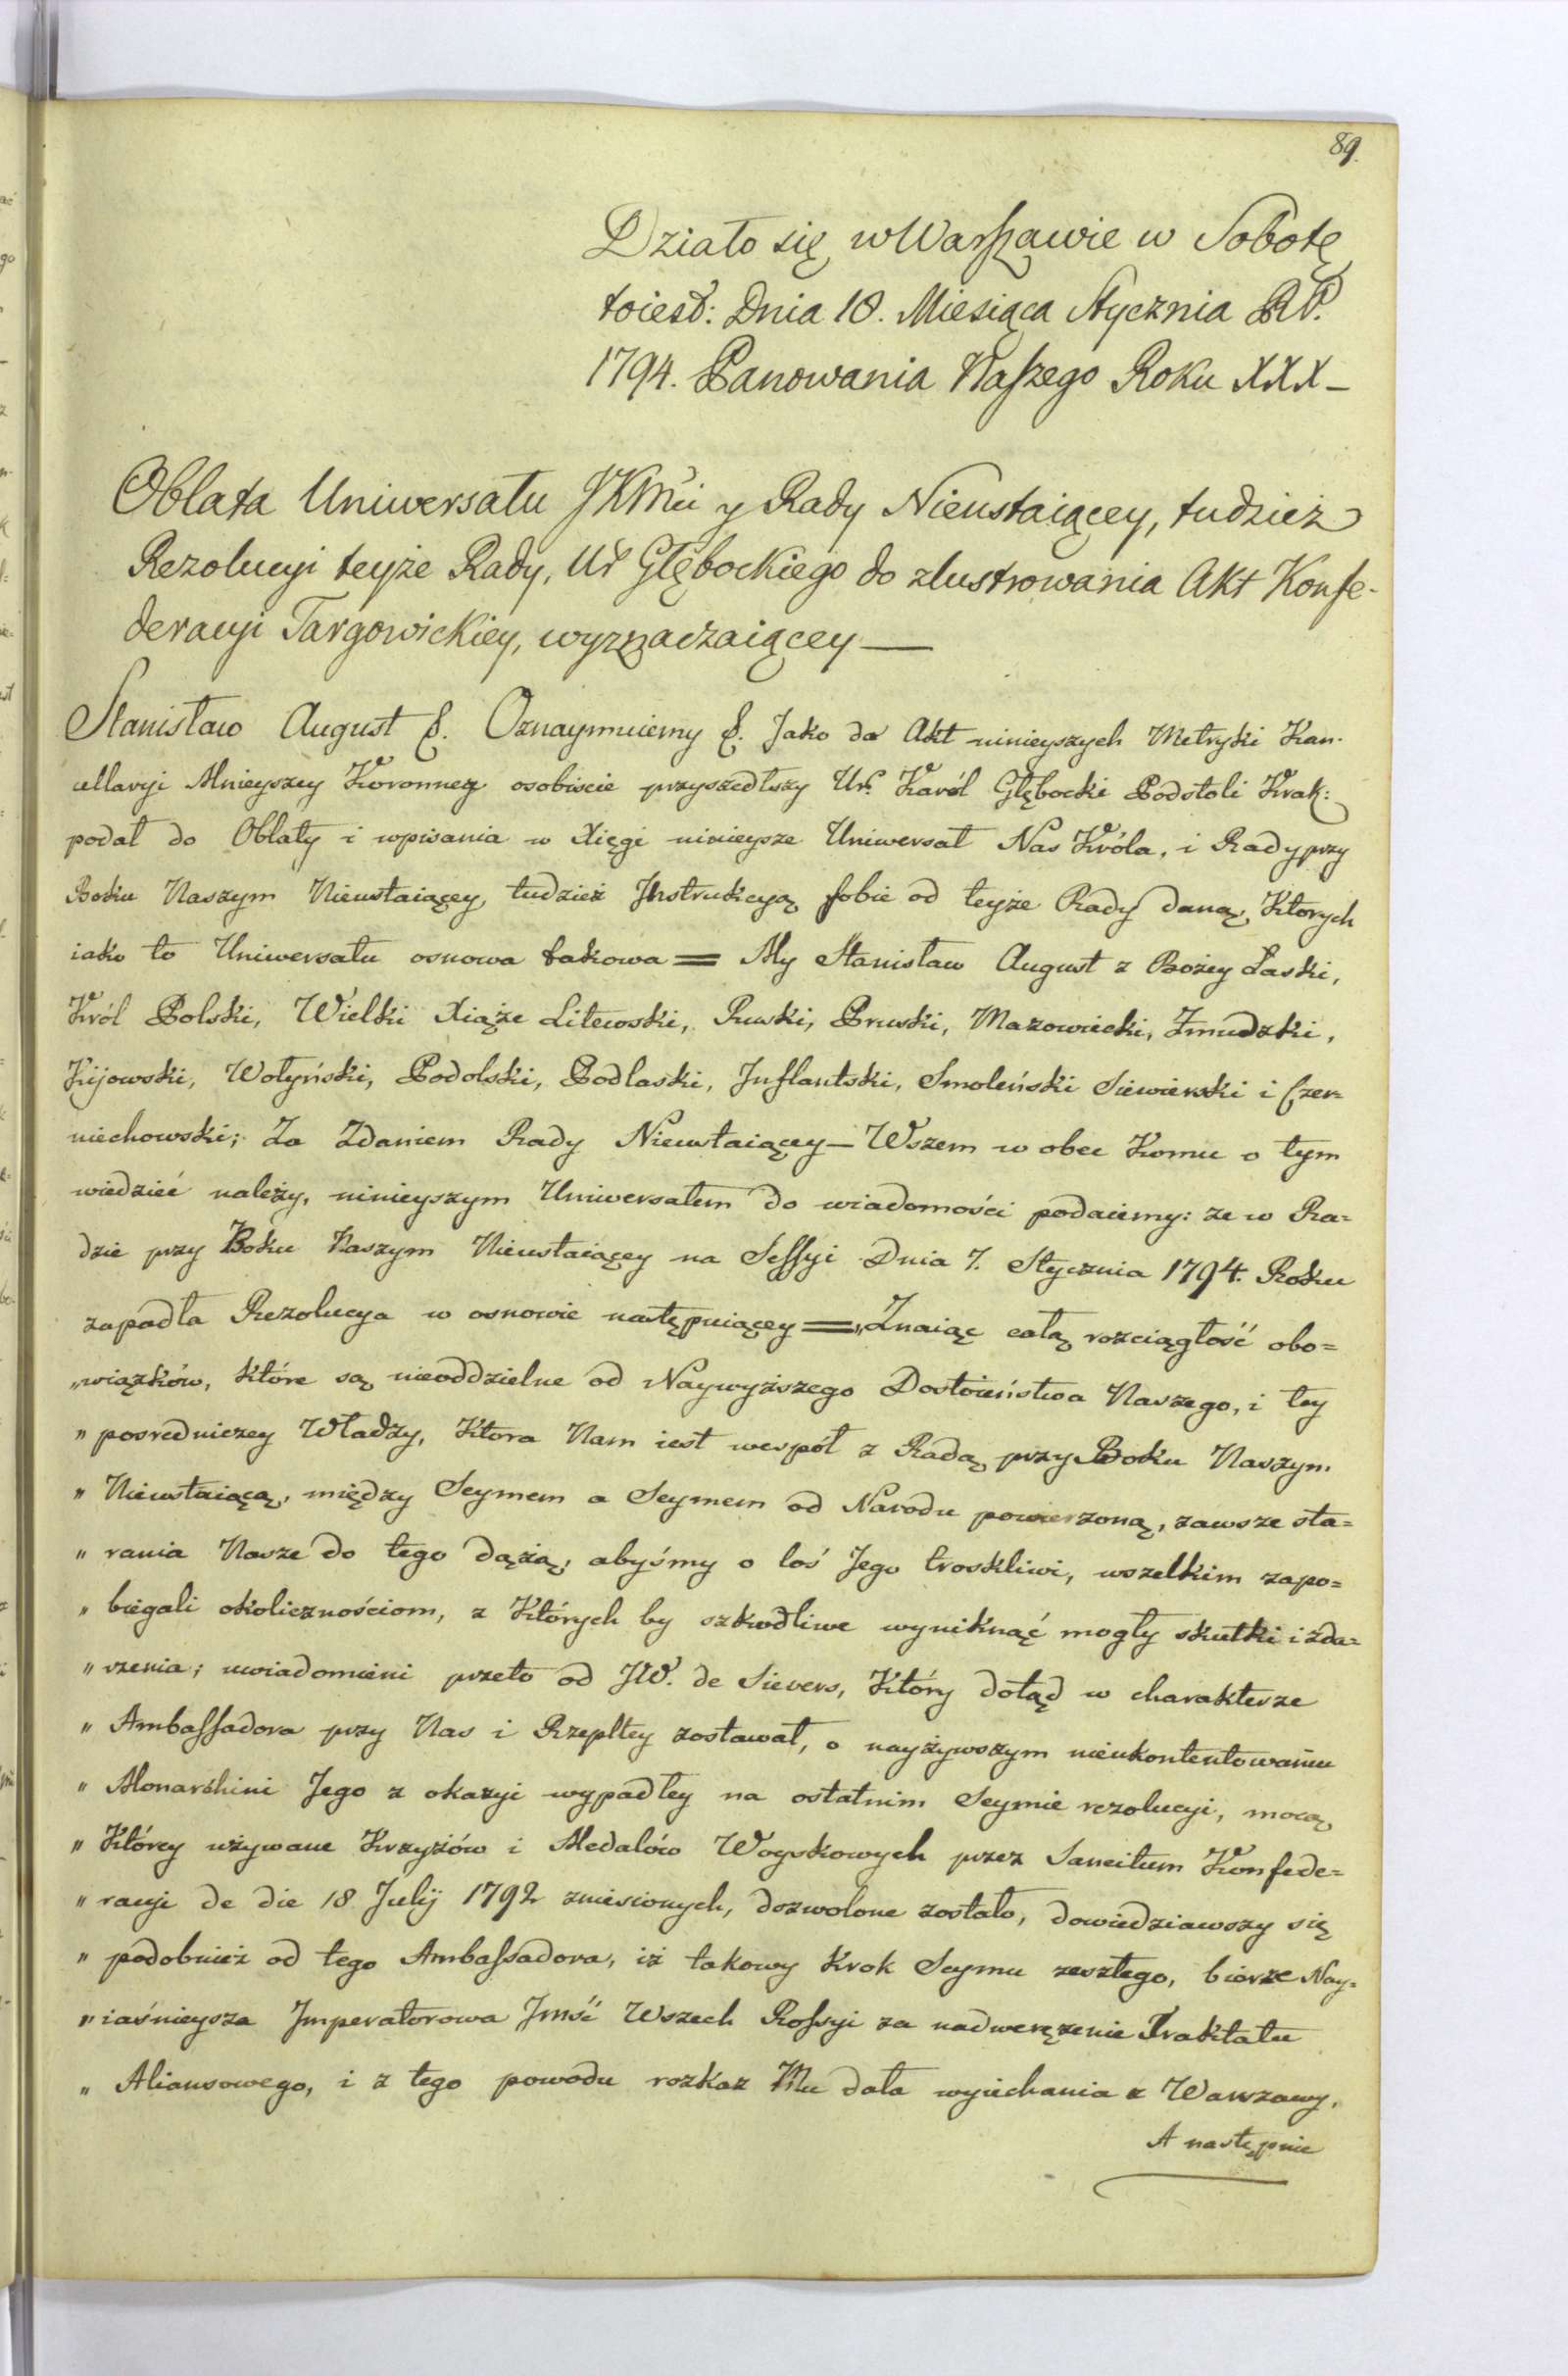 89.
Działo się w Warszawie w Sobotę
toiest: Dnia 18. Miesiąca Stycznia RP.
1794. Panowania Naszego Roku XXX –
Oblata Uniwersału JKMci y Rady Nieustaiącey, tudzież
Rezolucyi teyże Rady, Ur Głębockiego do zlustrowania Akt Konfe-
deracyi Targowickiey, wyznaczaiącey —
Stanisław August &. Oznaymuiemy &. Jako do Akt ninieyszych Metryki Kan-
cellaryi Mnieyszey Koronney osobiscie przyszedłszy Ur. Karól Głębocki Podstoli Krak:
podał do Oblaty i wpisania w Xięgi ninieysze Uniwersał Nas Króla, i Rady przy
Boku Naszym Nieustaiącey, tudzież Jnstrukcyą sobie od teyże Rady daną, Ktorych
iako to Uniwersału osnowa takowa = My Stanisław August z Bożey Łaski,
Król Polski, Wielki Xiąże Litewski, Ruski, Pruski, Mazowiecki, Zmudzki,
Kijowski, Wołyński, Podolski, Podlaski, Jnflantski, Smoleński Siewierski i Czer=
niechowski; Za Zdaniem Rady Nieustaiącey – Wszem w obec Komu o tym
wiedzieć należy, ninieyszym Uniwersałem do wiadomości podaiemy: ze w Ra=
dzie przy Boku Naszym Nieustaiącey na Sessyi Dnia 7. Stycznia 1794. Roku
zapadła Rezolucya w osnowie następuiącey = „Znaiąc całą rozciągłość obo=
„wiązków, które są nieoddzielne od Naywyższego Dostoieństwa Naszego, i tey
„ posredniczey Władzy, Ktora Nam iest wespół z Radą przy Boku Naszym
„ Nieustaiącą, między Seymem a Seymem od Narodu powierzoną, zawsze sta=
„ rania Nasze do tego dążą, abyśmy o loś Jego troskliwi, wszelkim zapo=
„ biegali okolicznościom, z Których by szkodliwe wyniknąć mogły skutki i zda=
„ rzenia; uwiadomieni przeto od JW. de Sievers, Który dotąd w charakterze
„ Ambassadora przy Nas i Rzepltey zostawał, o nayżywszym nieukontentowaniu
„ Monarchini Jego z okazyi wypadłey na ostatnim Seymie rezolucyi, mocą
„ Którey używane Krzyżów i Medalów Woyskowych przez Sancitum Konfede=
„ racyi de die 18 Julij 1792 zniesionych, dozwolone zostało, dowiedziawszy się
„ podobnież od tego Ambassadora, iż takowy Krok Seymu zeszłego, bierze Nay=
„ iaśnieysza Jmperatorowa Jmść Wszech Rossyi za nadweręzenie Traktatu
„ Aliansowego, i z tego powodu rozkaz Mu dała wyiechania z Warszawy,
A następnie